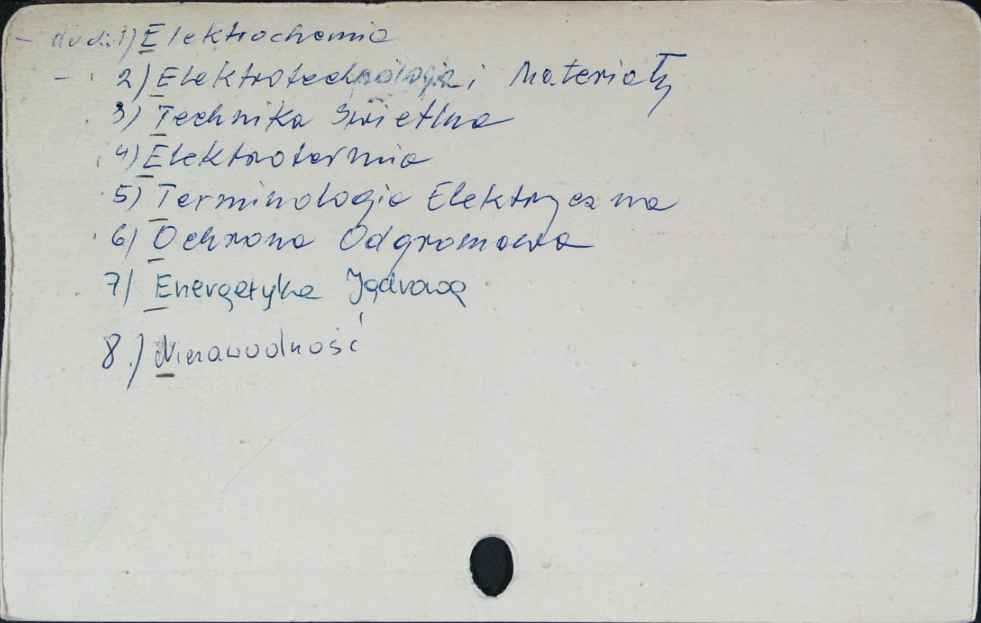 1) Elektrochemia
2) Elektrotechnologia i Materiały
3) Technika Świetlna
4) Elektrotermia
5) Terminologia Elektryczna
6) Ochrona Odgromowa
7) Energetyka Jądrową
8.) Niezawodność